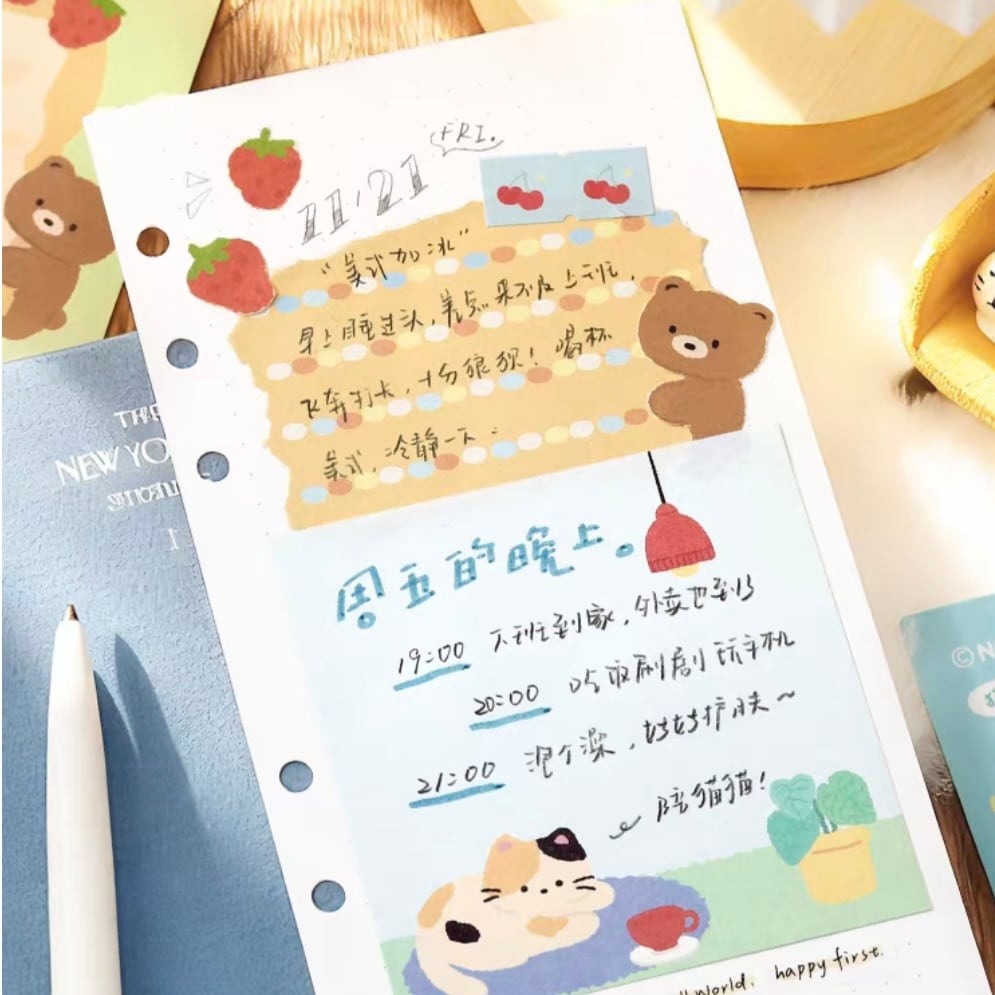 FRI.
11·21
"美式加冰"
早上睡过头，差点来不及上班，
飞奔打卡，十分狼狈！喝杯
美式，冷静一下：
周五的晚上。
19:00 下班到家，外卖也到了
20:00 吃饭刷剧玩手机
21:00 泡个澡，好好护肤~
陪猫猫！
world, happy first.
NEW YO
©N